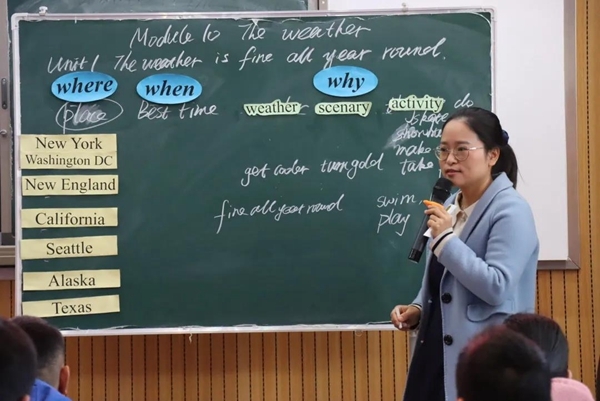 Module 10 The weather
Unit 1 The weather is fine all year round.
where when why
place Best time weather scenary activity do
skate
make
take
New York
Washington DC
New England get cooler turn gold
California fine all year round swim
play
Seattle
Alaska
Texas